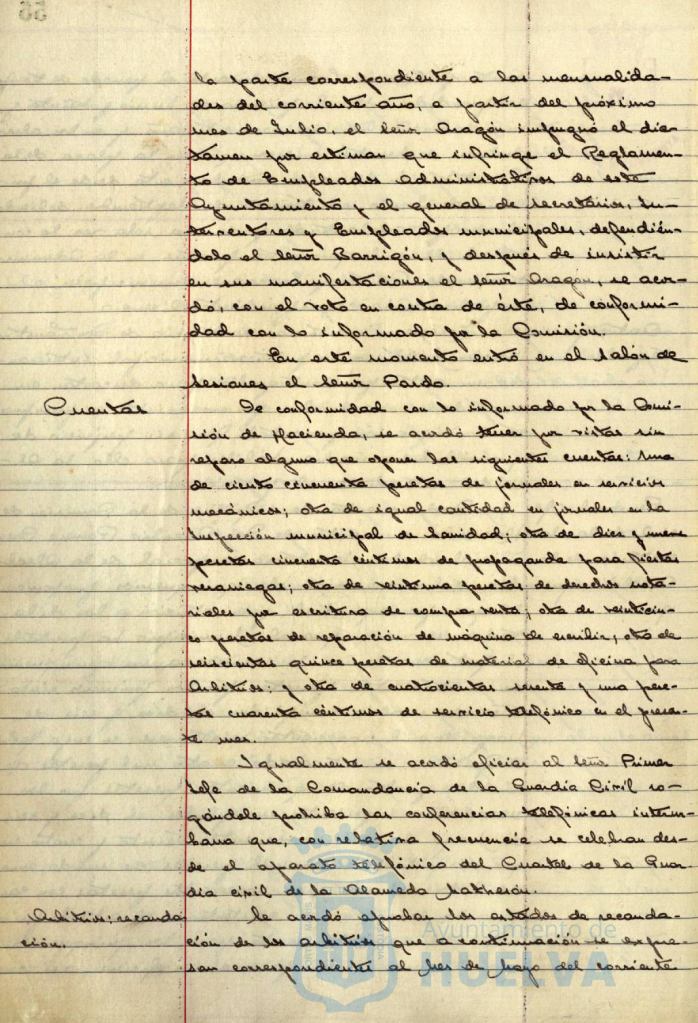 55
la parte correspondiente a las mensualida-
des del corriente año, a partir del próximo
mes de Julio, el señor Aragón impugnó el dic-
tamen por estimar que infringe el Reglamen-
to de Empleados administrativos de este
Ayuntamiento y el general de secretarios, In-
terventores y Empleados municipales, defendién-
dolo el señor Barrigón, y después de insistir
en sus manifestaciones el señor Aragón, se acor-
dó, con el voto en contra de éste, de conformi-
dad con lo informado por la Comisión.
En este momento entró en el salón de
sesiones el señor Pardo.
Cuentas
De conformidad con lo informado por la Comi-
sión de Hacienda, se acordó tener por vistas sin
reparo alguno que oponer las siguientes cuentas: una
de ciento cincuenta pesetas de jornales en servicios
mecánicos; otra de igual cantidad en jornales en la
Inspección municipal de Sanidad; otra de diez y nueve
pesetas cincuenta céntimos de propaganda para fiestas
veraniegas; otra de veintiuna pesetas de derechos nota-
riales por escritura de compra venta; otra de veinticin-
co pesetas de reparación de máquina de escribir; otra de
seiscientas quince pesetas de material de oficina para
Arbitrios; y otra de cuatrocientas sesenta y una pese-
tas cuarenta céntimos de servicio telefónico en el presen-
te mes.
Igualmente se acordó oficiar al Señor Primer
Jefe de la Comandancia de la Guardia Civil ro-
gándole prohiba las conferencias telefónicas interur-
banas que, con relativa frecuencia se celebran des-
de el aparato telefónico del Cuartel de la Guar-
dia civil de la Alameda Sundheim.
Arbitrios; recauda-
ción.
Se acordó aprobar los estados de recauda-
ción de los arbitrios que a continuación se expre-
san correspondientes al mes de Mayo del corriente
Ayuntamiento de
HUELVA